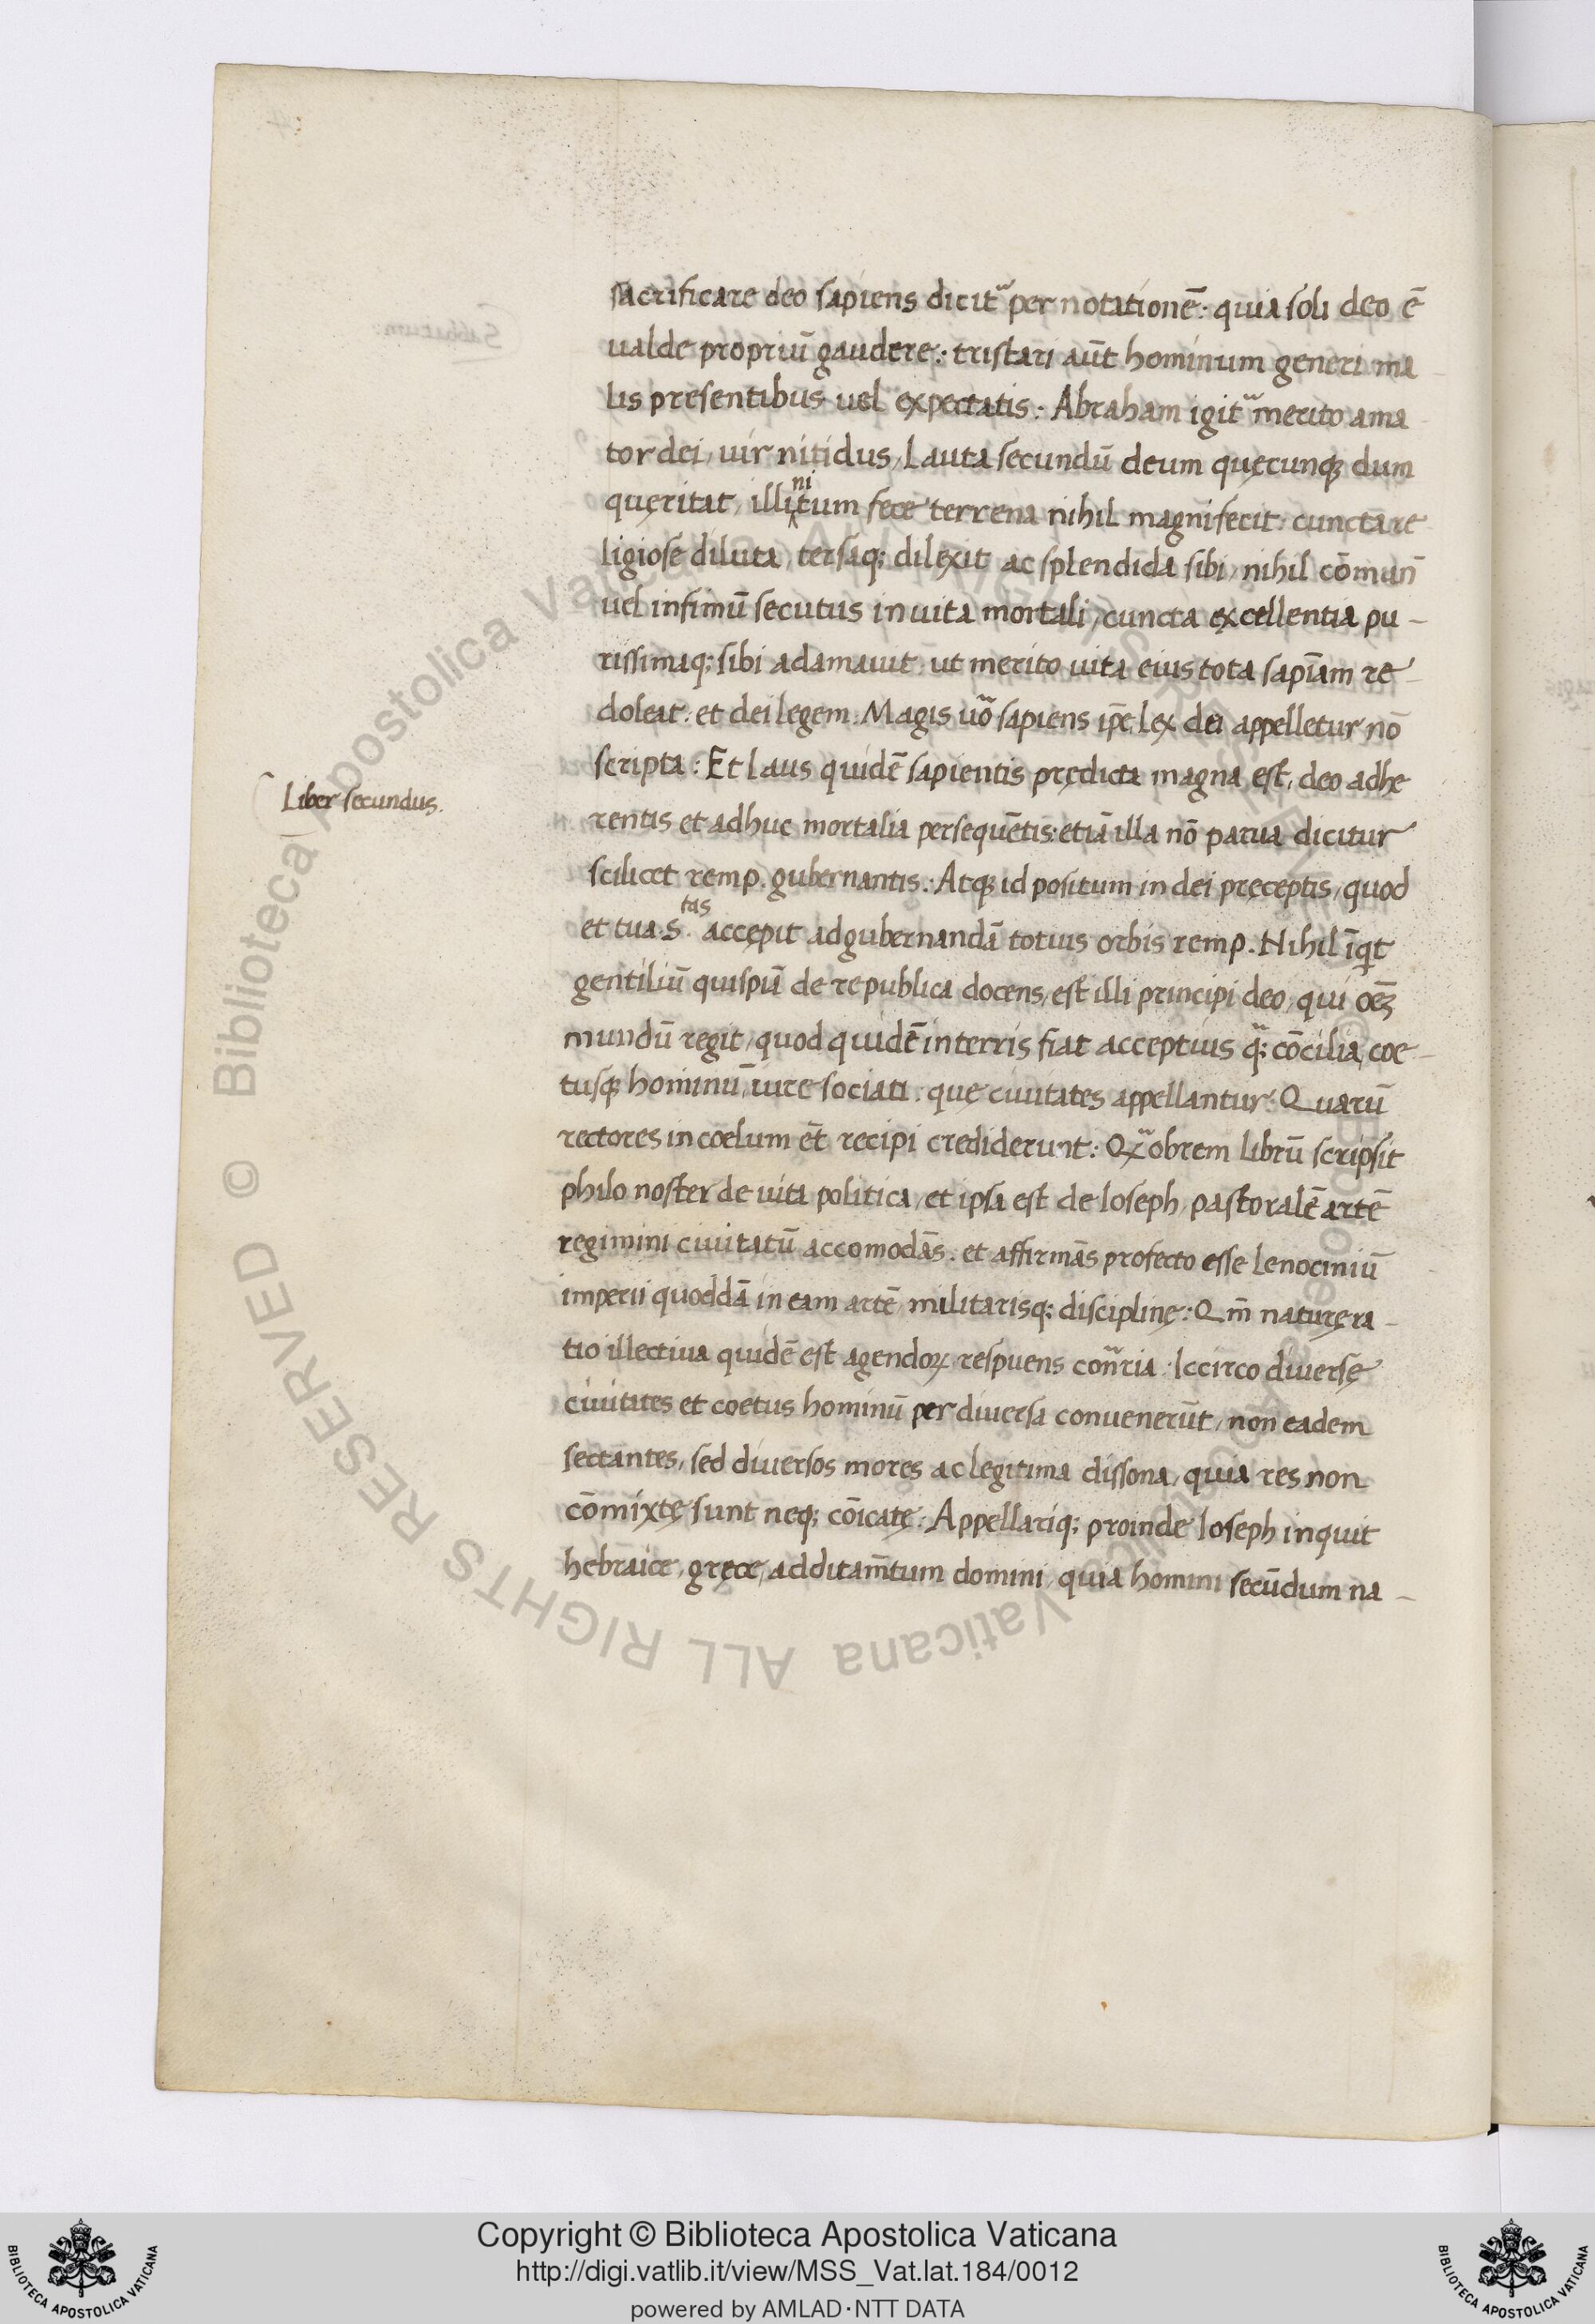 sacrificare deo sapiens dicit᷑ per notationē: quia soli deo ē
ualde propriū gaudere: tristari aūt hominum generi ma
lis presentibus uel expectatis: Abraham igit᷑ merito ama
tor dei, uir nitidus, lauta secundū deum quęcunqꝫ dum
quęritat, illitum fece terrena nihil magnifecit: cuncta re
ni
ligiose diluta, tersaqꝫ dilexit ac splendida sibi, nihil cōmun̄
uel infimū secutus in uita mortali, cuncta excellentia pu-
rissimaqꝫ sibi adamauit: ut merito uita eius tota sapīam re-
doleat: et dei legem. Magis uō sapiens ip̄e lex dei appelletur nō
scripta: Et laus quidē sapientis prędicta magna est, deo adhe
Liber secundus.
rentis et adhuc mortalia persequētis: etiā illa nō parua dicitur
scilicet remp. gubernantis: Atqꝫ id positum in dei pręceptis, quod
et tua S.tas accępit ad gubernandā totius orbis remp. Nihil īqt
gentiliū quispiā de republica docens, est illi principi deo, qui oēꝫ
mundū regit, quod quidē in terris fiat acceptius qꝫ cōcilia, coe-
tusqꝫ hominū, iure sociati: quę ciuitates appellantur: Quarū
rectores in coelum ēt recipi crediderunt: Qᷓobrem librū scripsit
philo noster de uita politica, et ipsa est de Ioseph, pastoralē artē
regimini ciuitatū accomodās: et affirmās profecto esse lenociniū
imperii quoddā in eam artē militarisqꝫ disciplinę: Qm̄ naturę ra-
tio illectiua quidē est agendoꝝ respuens con̄ria: Iccirco diuersę
ciuitates et coetus hominū per diuersa conuenerūt, non eadem
sectantes, sed diuersos mores ac legitima dissona, quia res non
cōmixtę sunt neqꝫ cōicatę: Appellariqꝫ proinde Ioseph inquit
hebraice, gręce, additam̄tum domini, quia homini secūdum na-
Copyright © Biblioteca Apostolica Vaticana
http://digi.vatlib.it/view/MSS_Vat.lat.184/0012
powered by AMLAD·NTT DATA
BIBLIOTECA APOSTOLICA VATICANA
BIBLIOTECA APOSTOLICA VATICANA